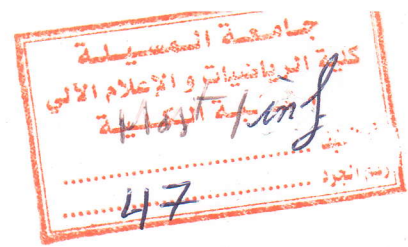 جامعة المسيلة
كلية الرياضيات و الإعلام الآلي
Mast / inf
رقم الجرد
47